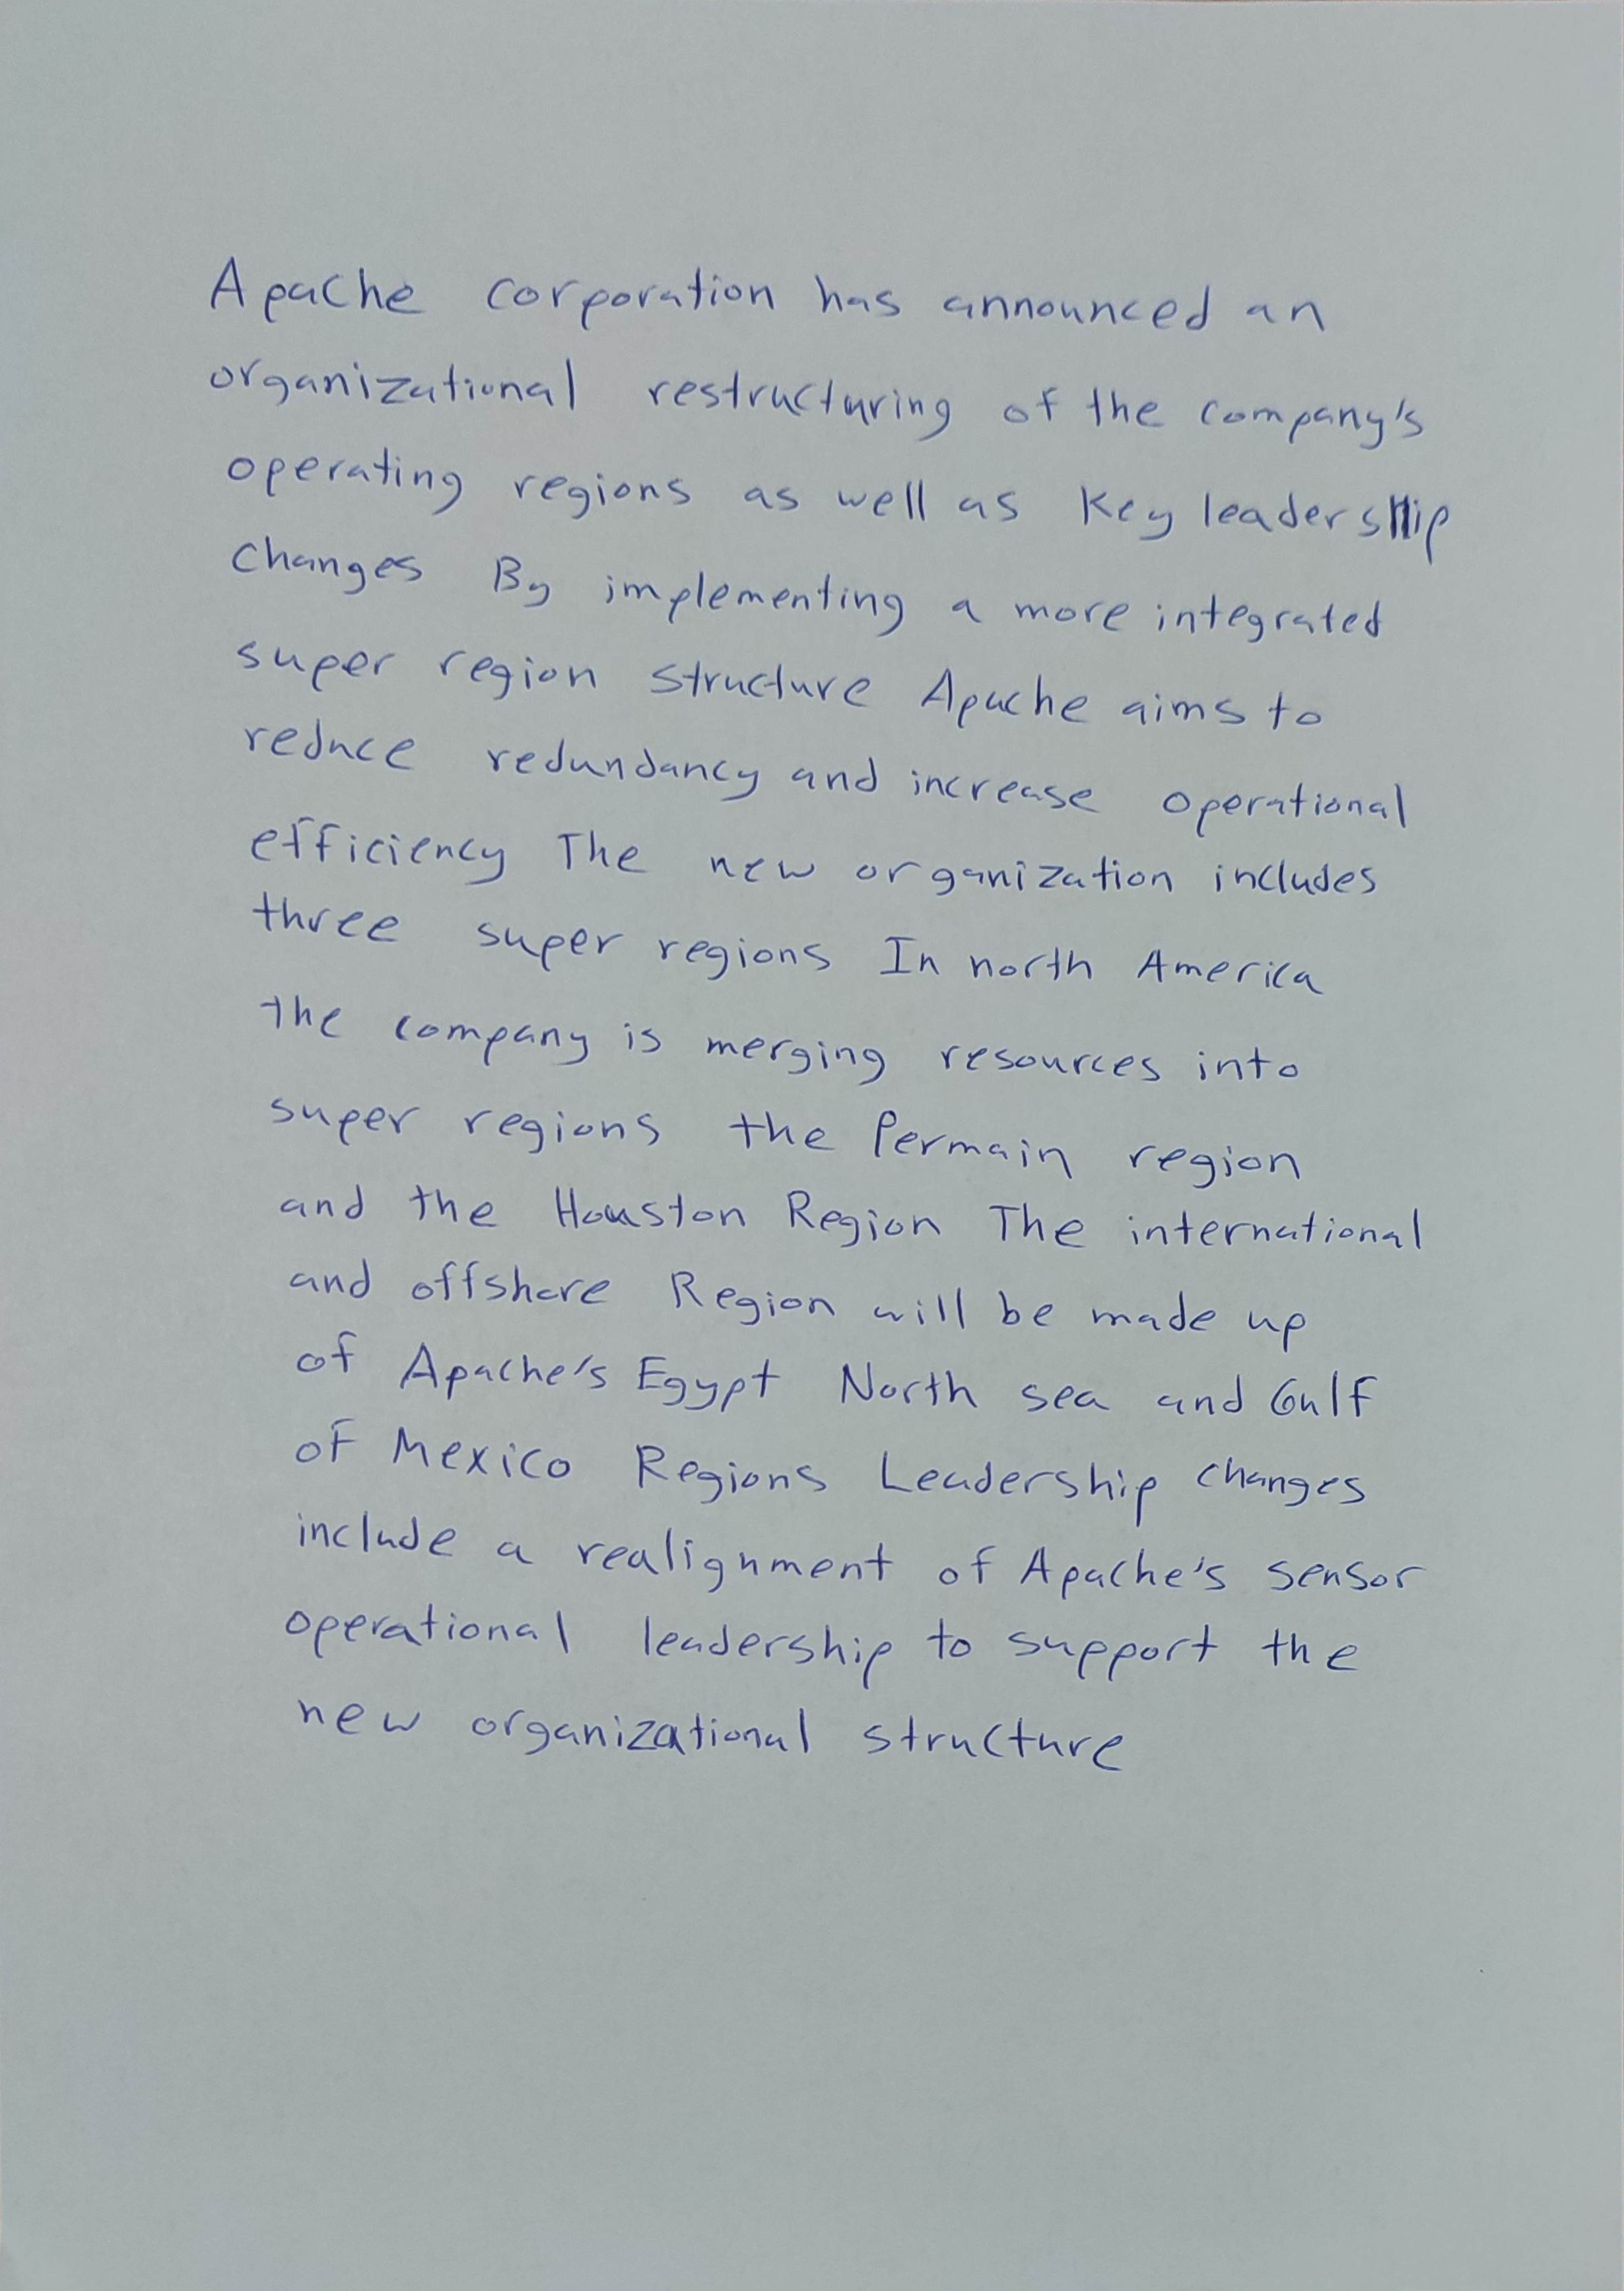 Apache corporation has announced an
organizational restructuring of the company's
operating regions as well as Key leadership
changes By implementing a more integrated
super region structure Apache aims to
reduce redundancy and increase operational
efficiency The new organization includes
three super regions In north America
the company is merging resources into
super regions the Permain region
and the Houston Region The international
and offshore Region will be made up
of Apache's Egypt North sea and Gulf
of Mexico Regions Leadership changes
include a realignment of Apache's sensor
operational leadership to support the
new organizational structure